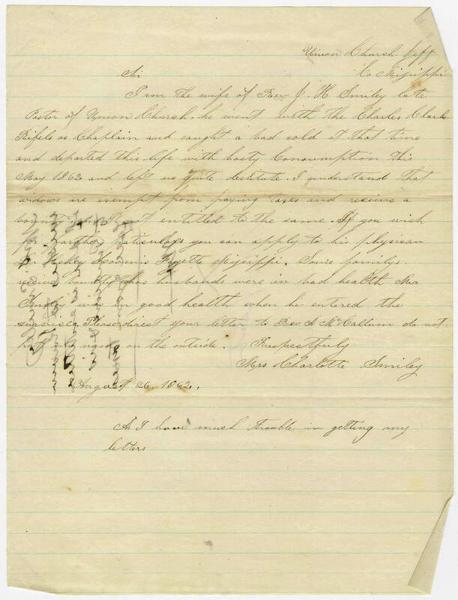 Union Church Jeff
Co Missippi
Sir
I am the wife of Rev J. H. Smiley late
Pastor of Union Church. he went with the Charles Clark
Rifels as Chaplain and caught a bad cold at that time
and departed this life with hasty Consumption this
May 1862 and left us quite destitute. I understand that
widows are exempt from paying taxes and receive a
entitled to the same. If you wish
for particulars you can apply to his physician
Fayette Missippi. Some families
husbands were in bad health Mr
was in good health when he entered the
Please direct your letter to Rev A McCallum do not
put my name on the outside. Respectfully
Mrs Charlotte Smiley
August 26 1862.
As I have much trouble in getting my
letters